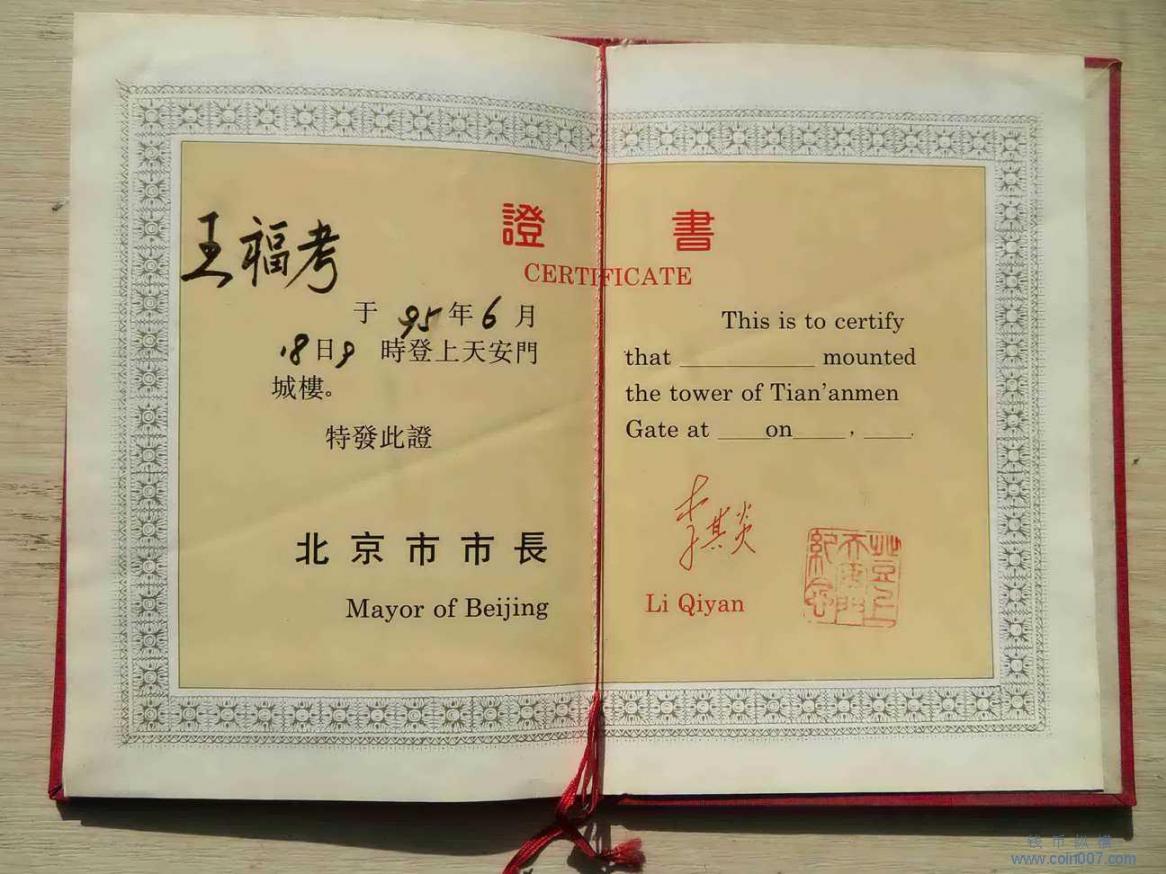 證書
CERTIFICATE
王福考
于 95 年 6 月
18日9 時登上天安門
城樓。
特發此證
北京市市長
Mayor of Beijing
This is to certify
that ____________ mounted
the tower of Tian'anmen
Gate at ____on_____, ____.
李其炎
Li Qiyan
登上天安門紀念
钱币纵横
www.coin007.com